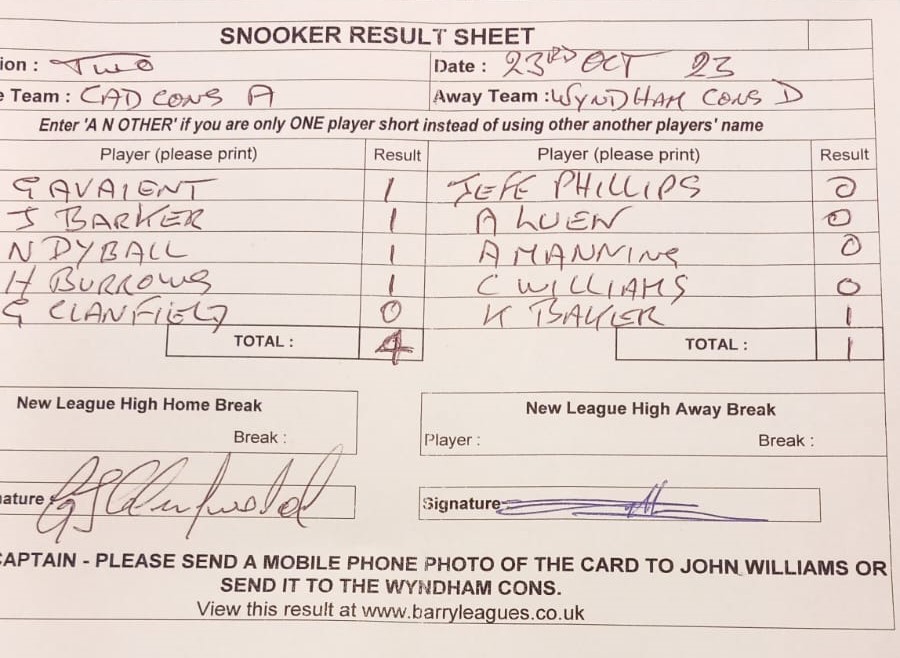 SNOOKER RESULT SHEET
ion : TWO Date : 23RD OCT 23
e Team : CAD CONS A Away Team : WYNDHAM CONS D
Enter 'A N OTHER' if you are only ONE player short instead of using other another players' name
Player (please print) Result Player (please print) Result
G AVAIENT 1 JEFF PHILLIPS 0
J BARKER 1 A LUEN 0
N DYBALL 1 A MANNING 0
H BURROWS 1 C WILLIAMS 0
G CLANFIELD 0 K BAKER 1
TOTAL : 4 TOTAL : 1
New League High Home Break New League High Away Break
Break : Player : Break :
ature Signature
CAPTAIN - PLEASE SEND A MOBILE PHONE PHOTO OF THE CARD TO JOHN WILLIAMS OR
SEND IT TO THE WYNDHAM CONS.
View this result at www.barryleagues.co.uk